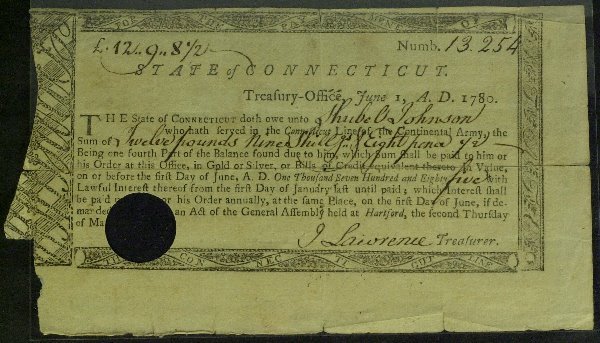 FOR THE PAYMENT OF
£. 12 „ 9 „ 8 1/2
Numb. 13.254
STATE of CONNECTICUT.
Treasury-Office, June 1, A. D. 1780.
THE State of CONNECTICUT doth owe unto Shubel Johnson
who hath served in the Connecticut Line of the Continental Army, the
Sum of Twelve pounds Nine Shills & Eight pence 1/2
Being one fourth Part of the Balance found due to him, which Sum shall be paid to him or
his Order at this Office, in Gold or Silver, or Bills of Credit equivalent thereto in Value,
on or before the first Day of June, A. D. One Thousand Seven Hundred and Eighty five with
Lawful Interest thereof from the first Day of January last until paid; which Interest shall
be paid or his Order annually, at the same Place, on the first Day of June, if de-
manded an Act of the General Assembly held at Hartford, the second Thursday
of Ma
J Lawrence Treasurer.
CON NEC TI CUT LINE